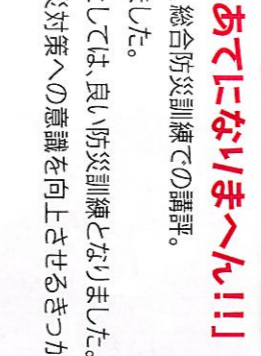 あてになりまへん!!」
総合防災訓練での講評。
した。
しては、良い防災訓練となりました。
災対策への意識を向上させるきっか